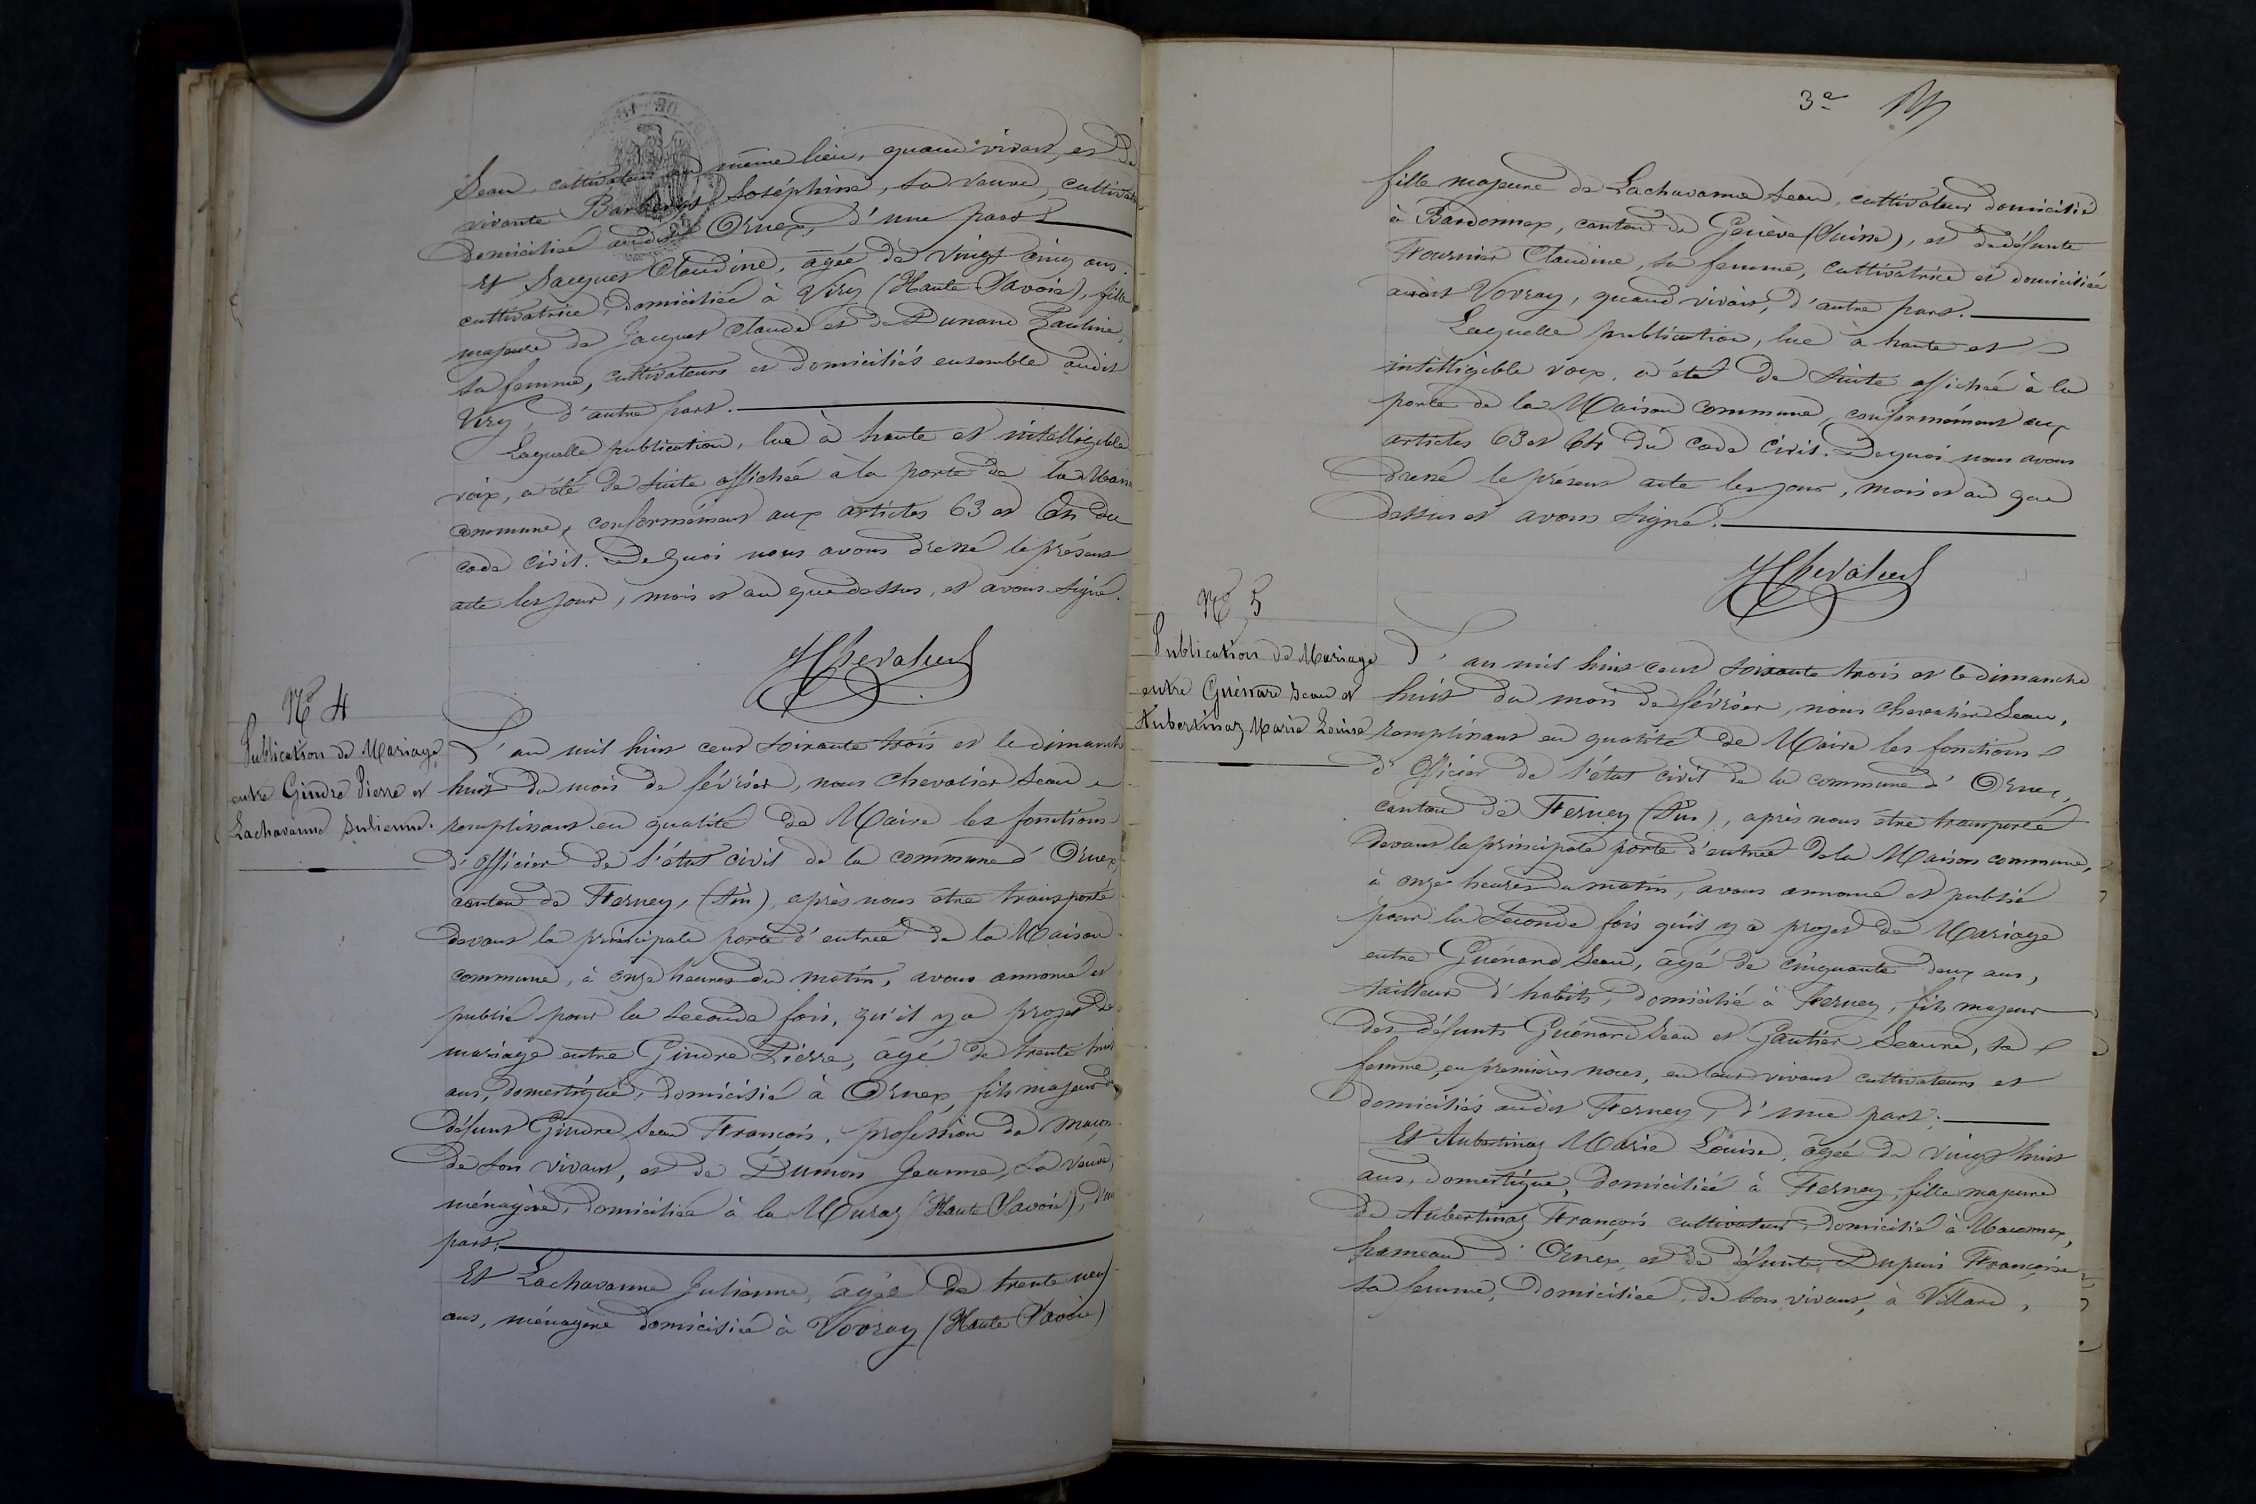 Jean, cultivateur au même lieu, quand vivait, et de
vivante Joséphine, sa veuve, cultivatrice
domiciliée audit Ornex, d'une part
Et Jacquet Claudine, âgée de vingt cinq ans,
cultivatrice, domiciliée à Viry (Haute Savoie), fille
majeure de Jacquet Claude et de Dunand Pauline,
sa femme, cultivateurs et domiciliés ensemble audit
Viry, d'autre part.
Laquelle publication, lue à haute et intelligible
voix, a été de suite affichée à la porte de la Maison
commune, conformément aux articles 63 et 64 du
code civil. De quoi nous avons dressé le présent
acte les jour, mois et an que dessus, et avons signé.
JChevalier
N° 4
Publication de Mariage
entre Gindre Pierre et
Lachavanne Julienne.
L'an mil huit cent soixante trois et le dimanche
huit du mois de février, nous Chevalier Jean
remplissant en qualité de Maire les fonctions
d'officier de l'état civil de la commune d'Ornex,
canton de Ferney, (Ain), après nous être transporté
devant la principale porte d'entrée de la Maison
commune, à onze heures du matin, avons annoncé et
publié pour la seconde fois, qu'il y a projet de
mariage entre Gindre Pierre, âgé de trente huit
ans, domestique, domicilié à Ornex, fils majeur de
défunt Gindre Jean François, profession de maçon
de son vivant, et de Dumon Jeanne, sa veuve,
ménagère, domiciliée à la Muraz (Haute Savoie), d'une
part.
Et Lachavanne Julienne, âgée de trente neuf
ans, ménagère domiciliée à Vovray (Haute Savoie)
3e
fille majeure de Lachavanne Jean, cultivateur domicilié
à Bardonnex, canton de Genève (Suisse), et de défunte
Fournier Claudine, sa femme, cultivatrice et domiciliée
audit Vovray, quand vivait, d'autre part.
Laquelle publication, lue à haute et
intelligible voix, a été de suite affichée à la
porte de la Maison commune, conformément aux
articles 63 et 64 du code civil. De quoi nous avons
dressé le présent acte les jour, mois et an que
dessus et avons signé.
JChevalier
N° 5
Publication de Mariage
entre Guénard Jean et
Aubertinaz Marie Louise
L'an mil huit cent soixante trois et le dimanche
huit du mois de février, nous Chevalier Jean,
remplissant en qualité de Maire les fonctions
d'Officier de l'état civil de la commune d'Ornex,
canton de Ferney (Ain), après nous être transporté
devant la principale porte d'entrée de la Maison commune,
à onze heures du matin, avons annoncé et publié
pour la seconde fois qu'il y a projet de Mariage
entre Guénard Jean, âgé de cinquante deux ans,
tailleur d'habits, domicilié à Ferney, fils majeur
des défunts Guénard Jean et Gautier Jeanne, sa
femme, en premières noces, en leur vivant cultivateurs et
domiciliés audit Ferney, d'une part.
Et Aubertinaz Marie Louise, âgée de vingt huit
ans, domestique, domiciliée à Ferney, fille majeure
de Aubertinaz François cultivateur, domicilié à Maconnex,
hameau d'Ornex, et de défunte Dupuis Françoise
sa femme, domiciliée, de son vivant, à Villard,